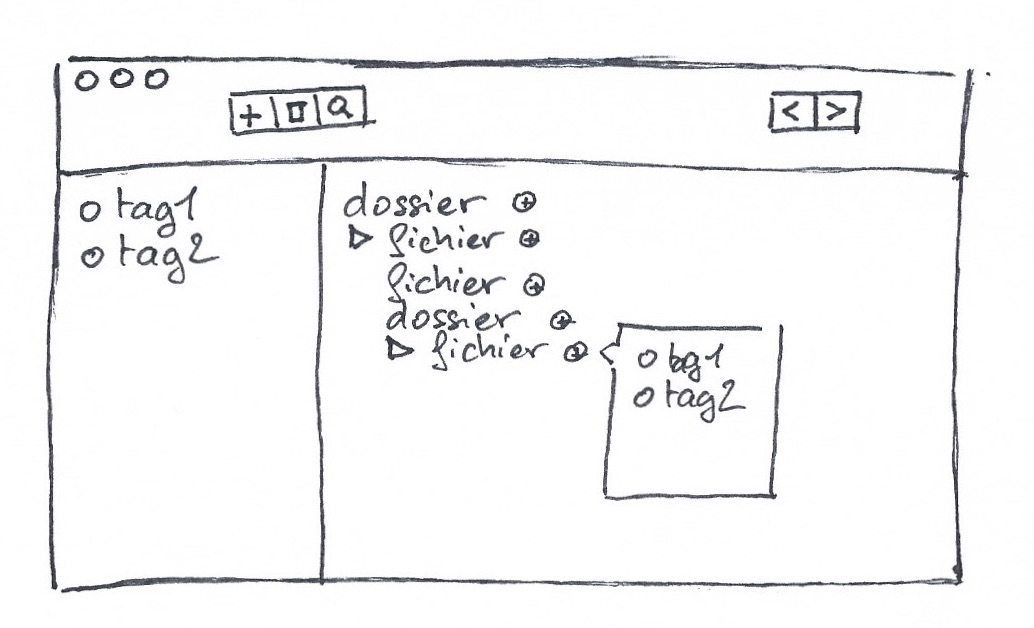 tag1
tag2
dossier
fichier
fichier
dossier
fichier
tag1
tag2